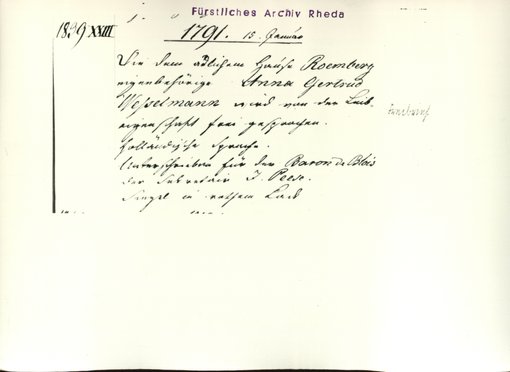 Fürstliches Archiv Rheda
1839 XXIII
1791. 15. Januar
Die dem adlichem Hause Roemberg
eigenbehörige Anna Gertrud
Wesselmann wird von der Leib-
eigenschaft frei gesprochen.
Holländische Sprache.
Unterschrieben für den Baron de Blois
der Sekretair J. Peese.
Siegel in rothem Lack